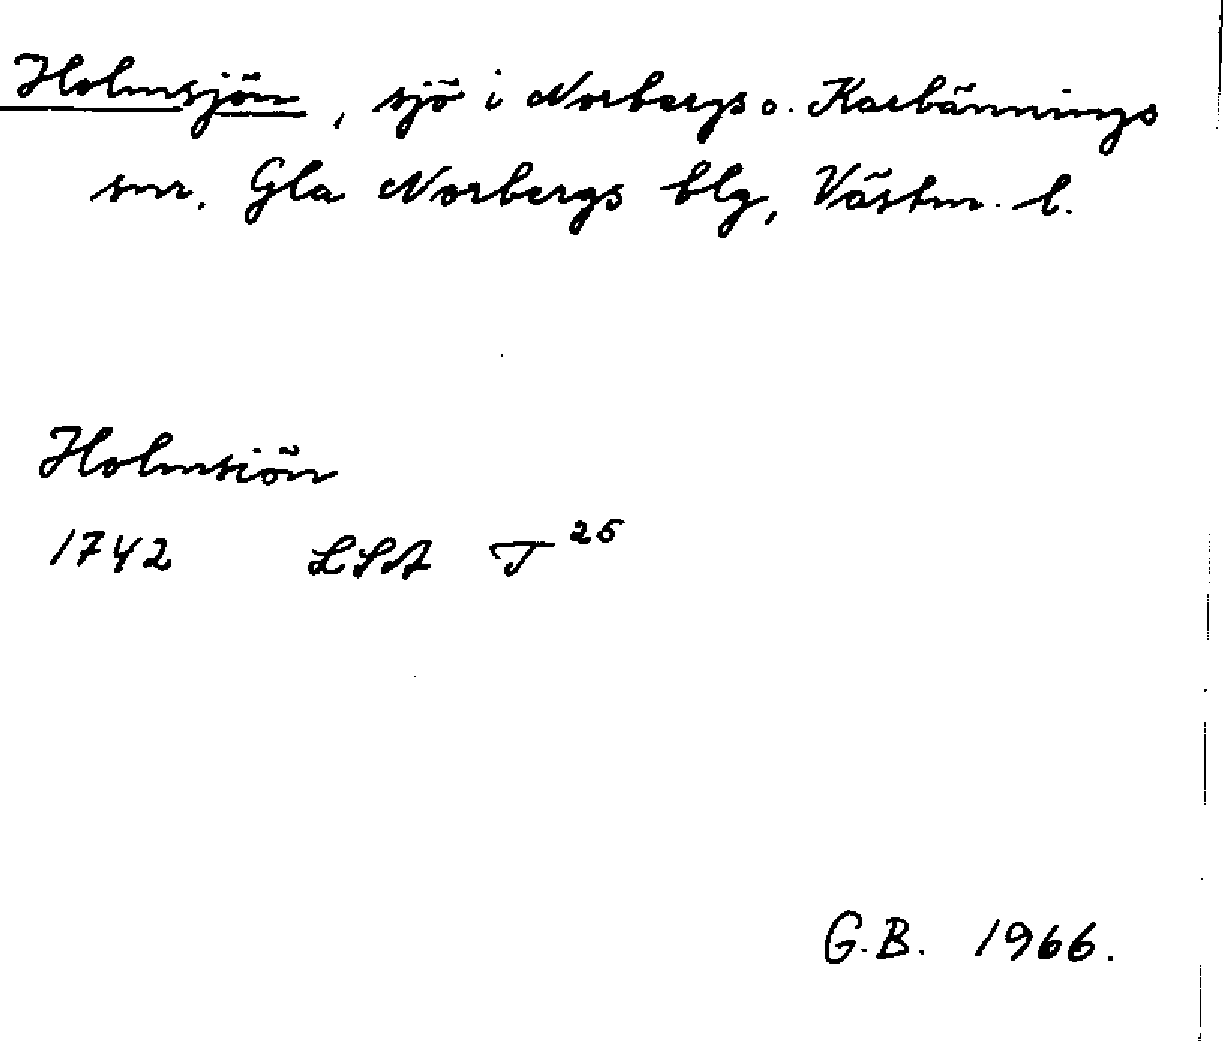 Holmsjön, sjö i Norbergs o. Karbännings
snr. Gla Norbergs blg, Västm. l.
Holmsiön
1742 LSA T 25
G.B. 1966.